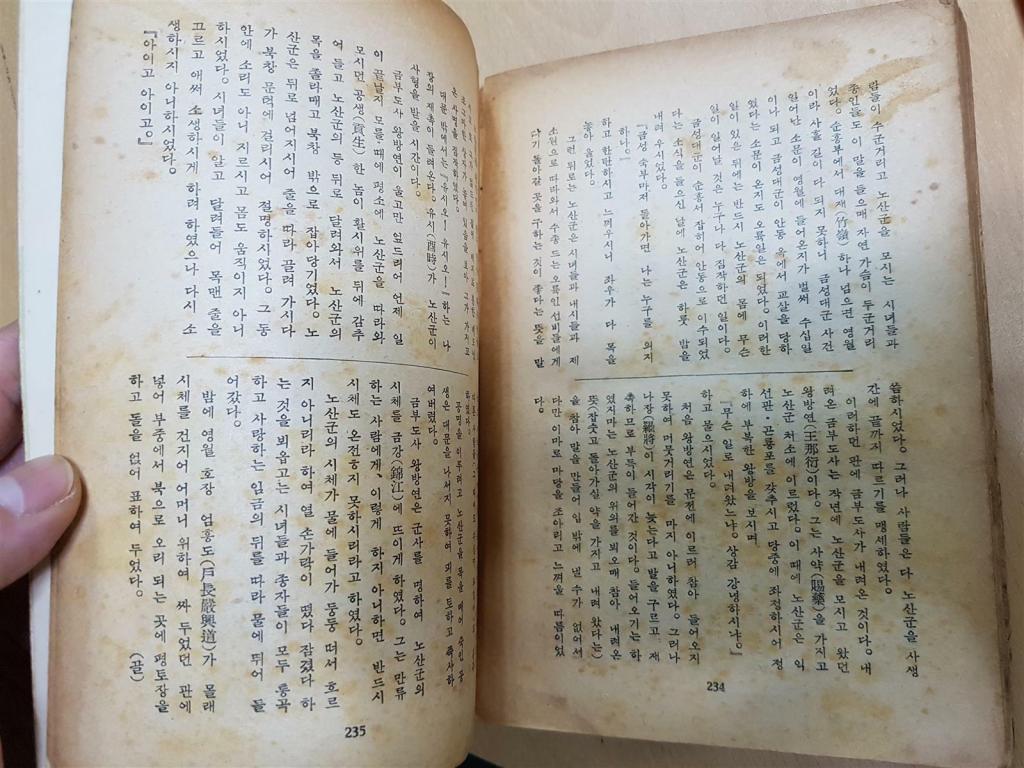 람들이 수군거리고 노산군을 모시는 시녀들과
종인들도 이 말을 들으매 자연 가슴이 두군거리
었다. 순흥부에서 대재(竹嶺) 하나 넘으면 영월
이라 사흘 길이 다 되지 못하니 금성대군 사건
일어난 소문이 영월에 들어온지가 벌써 수십일
이나 되고 금성대군이 안동 옥에서 교살을 당하
였다는 소문이 온지도 오륙일은 되었다. 이러한
일이 있은 뒤에는 반드시 노산군의 몸에 무슨
일이 누구나 다 짐작하던 일이다.
금성대군이 순흥서 잡히어 안동으로 이수되었
다는 소식을 들으신 날에 노산군은 하룻 밤을
내려 우시었다.
『금성 숙부마저 돌아가면 나는 누구를 의지
하나.』
하고 한탄하시고 느껴우시니 좌우가 다 목을
놓아 울었다.
그런 뒤로는 노산군은 시녀들과 내시들과 제
소원으로 따라와서 수종 드는 오륙인 선비들에게
다기 돌아갈 곳을 구하는 것이 좋다는 뜻을 말
씀하시었다. 그러나 사람들은 다 노산군을 사생
간에 끝까지 따르기를 맹세하였다.
이러하던 판에 금부도사가 내려온 것이다. 내
려온 금부도사는 작년에 노산군을 모시고 왔던
왕방연(王邦衍)이다. 그는 사약(賜藥)을 가지고
노산군 처소에 이르렀다. 이 때에 노산군은 익
선관·곤룡포를 갖추시고 당중에 좌정하시어 정
하에 부복한 왕방을 보시며
『무슨 일로 내려왔느냐. 상감 강녕하시냐.』
하고 물으시었다.
처음 왕방연은 문전에 이르러 참아 들어오지
못하여 머뭇거리기를 마지 아니하였다. 그러나
나장(羅將)이 시각이 늦는다고 발을 구르고 재
촉하므로 부득이 들어간 것이다. 들어오기는 하
였지마는 노산군의 위의를 뵈오매 참아 내려온
뜻(잡숫고 돌아가실 약을 가지고 내려 왔다는)
을 참아 말을 만들어 입 밖에 낼 수가 없어서
다만 이마로 마당을 조아리고 느껴울 따름이었
다.
234
온 사명을 짐작하였다.
대문 밖에서는 『유시오! 유시오!』 하는 나
장의 재촉이 들려온다. 유시(酉時)가 노산군이
사형을 받을 시간이다.
금부도사 왕방연이 울고만 엎드리어 언제 일
이 끝날지 모를 때에 평소에 노산군을 따라와
모시던 공생(貢生) 한 놈이 활시위를 뒤에 감추
어 들고 노산군의 등 뒤로 달려와서 노산군의
목을 졸라매고 북창 밖으로 잡아당기었다. 노
산군은 뒤로 넘어지시어 줄을 따라 끌려 가시다
가 북창 문턱에 걸리시어 절명하시었다. 그 동
안에 소리도 아니 지르시고 몸도 움직이지 아니
하시었다. 시녀들이 알고 달려들어 목맨 줄을
끄르고 애써 소생하시게 하려 하였으나 다시 소
생하시지 아니하시었다.
『아이고 아이고.』
하였다.
공명을 이루려고 노산군을 목을 매어 죽인 공
생은 대문을 나서지 못하여 피를 토하고 즉사하
여버렸다.
금부도사 왕방연은 군사를 명하여 노산군의
시체를 금강(錦江)에 뜨이게 하였다. 그는 만류
하는 사람에게 이렇게 하지 아니하면 반드시
시체도 온전ㅎ지 못하시리라고 하였다.
노산군의 시체가 물에 들어가 둥둥 떠서 흐르
지 아니리라 하여 열 손가락이 떴다 잠겼다 하
는 것을 뵈옵고는 시녀들과 종자들이 모두 통곡
하고 사랑하는 임금의 뒤를 따라 물에 뛰어 들
어갔다.
밤에 영월 호장 엄흥도(戶長嚴興道)가 몰래
시체를 건지어 어머니 위하여 짜 두었던 관에
넣어 부중에서 북으로 오리 되는 곳에 평토장을
하고 돌을 얹어 표하여 두었다. (끝)
235